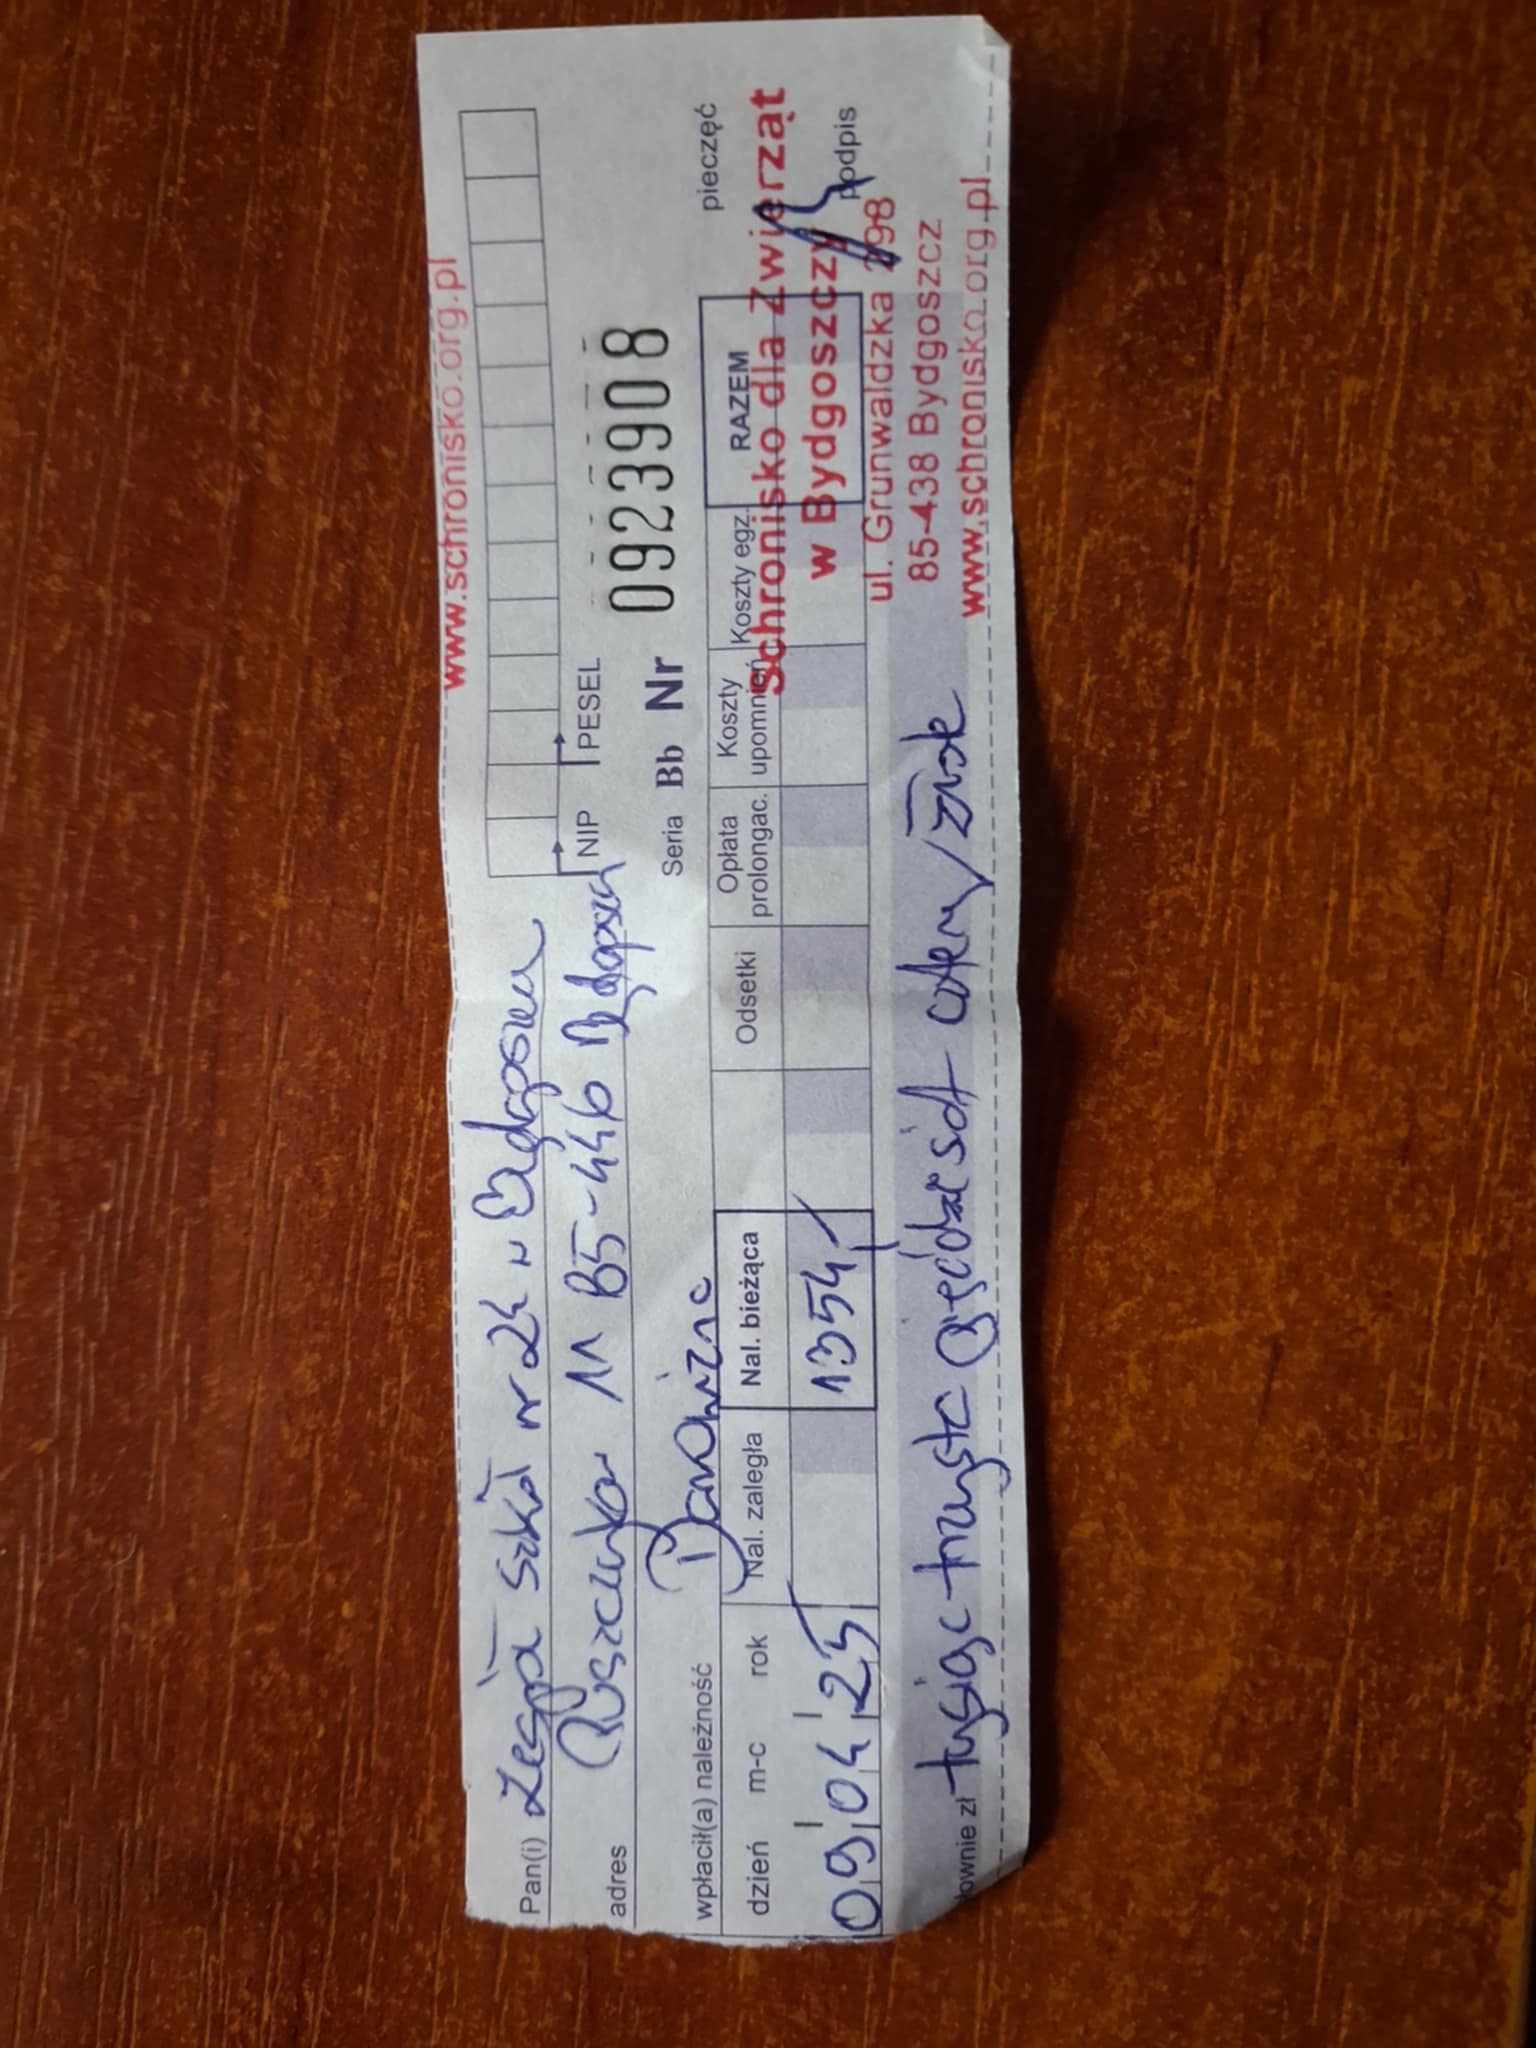 www.schronisko.org.pl
Pan(i) Zespół Szkół nr 24 w Bydgoszczy
adres Puszczyka 11 85-446 Bydgoszcz
NIP PESEL
wpłacił(a) należność Darowizna
Seria Bb Nr 0923908
pieczęć
dzień m-c rok Nal. zaległa Nal. bieżąca Odsetki Opłata prolongac. Koszty upomnień Koszty egz. RAZEM
09 04 25 1354,-
Schronisko dla Zwierząt
w Bydgoszczy
podpis
ul. Grunwaldzka 298
85-438 Bydgoszcz
www.schronisko.org.pl
łownie zł tysiąc trzysta pięćdziesiąt cztery złote